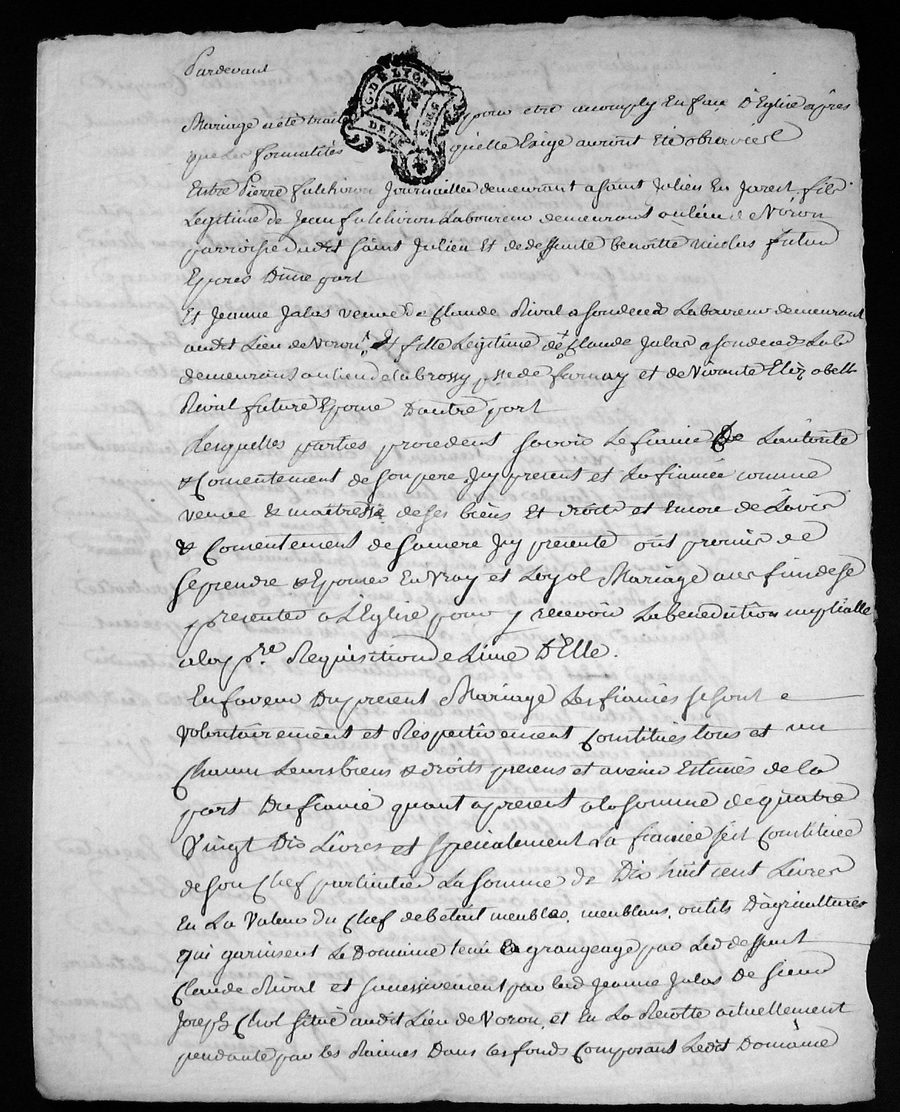 Pardevant
G. DE LYON
DEUX S. DEN.
Mariage a été traité pour etre accomply En face D'Eglise apres
que les formalités quelle Exige auront Eté observées
Entre Pierre fulchiron Journaillier demeurant a Saint Julien En Jarest, fils
Legitime de Jean fulchiron Laboureur demeurant au lieu de Voron
parroisse dudit Saint Julien Et de deffunte benoitte nicolas futur
Epoux D'une part
Et Jeanne Jalas veuve de Claude Rival a son deceds Laboureur demeurant
audit Lieu de Voron, & fille Legitime de Claude Jalas a son deceds Lab.r
demeurant au lieu de la brossy p.sse de farnay et de Vivante Elizabeth
Rival future Epouse D'autre part
Lesquelles parties procedent savoir Le fiancé De Lautorité
& Consentement de son pere Icy present et La fiancée comme
veuve & maîtresse de ses biens Et droits et encore de L'avis
& Consentement de sa mere Icy presente ont promis de
se prendre & Epouser En Vray et Loyal Mariage aux fins de se
presenter a L'Eglise pour y recevoir La benediction nuptialle
a la p.re Requisition de L'une D'Elle.
En faveur Du present Mariage Les fiancés se sont
volontairement et Respectivement Constitués tous et un
Chacun Leurs biens & droits presens et avenir Estimés de la
part Du fiancé quant a present a la somme de quatre
Vingt Dix Livres et specialement La fiancée s'est Constituée
de son Chef particulier La somme de Dix huit cent Livres
En La Valeur du Chef de betail meubles, meublans, outils D'agricultures
qui garnissent Le Domaine tenu En grangeage par Led. deffunt
Claude Rival et successivement par lad. Jeanne Jalas De sieur
Joseph Chol situé audit Lieu de Voron, et En La Recolte actuellement
pendante par les Racines Dans les fonds Composant Ledit Domaine